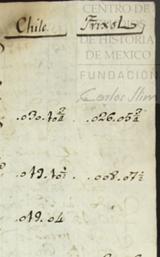 Chile. Frixol.
CENTRO DE
DE HISTORIA
DE MEXICO
FUNDACIÓN
Carlos Slim
.030.10½ .026.05½
.019.10½ .008.07½
.019.04